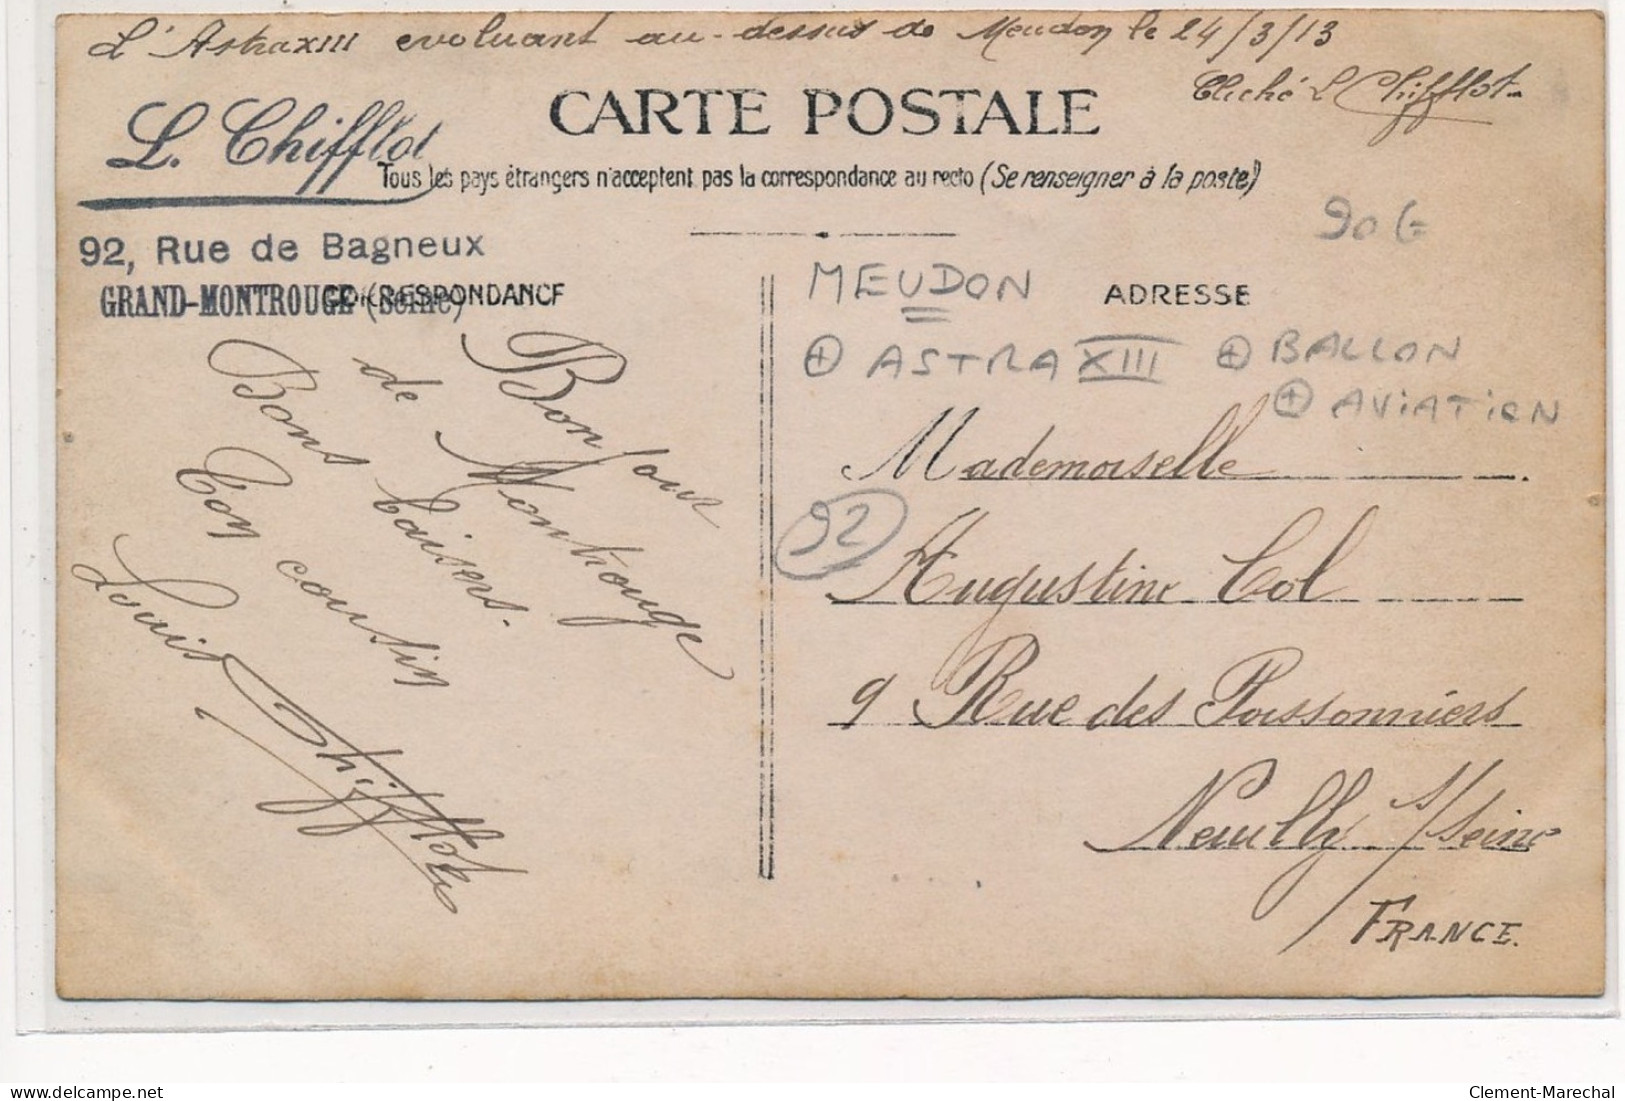 L'Astra XIII evoluant au-dessus de Meudon le 24/3/13
Cliché L Chifflot
CARTE POSTALE
L. Chifflot
Tous les pays étrangers n'acceptent pas la correspondance au recto (Se renseigner à la poste)
92, Rue de Bagneux
GRAND-MONTROUGE (Seine)
CORRESPONDANCE
Bonjour
de Montrouge
Bons baisers.
Ton cousin
Louis Chifflot
90€
MEUDON
ADRESSE
⊕ ASTRA XIII ⊕ BALLON
⊕ AVIATION
Mademoiselle
92
Augustine Col
9 Rue des Poissonniers
Neuilly s/Seine
FRANCE.
delcampe.net
Clement-Marechal